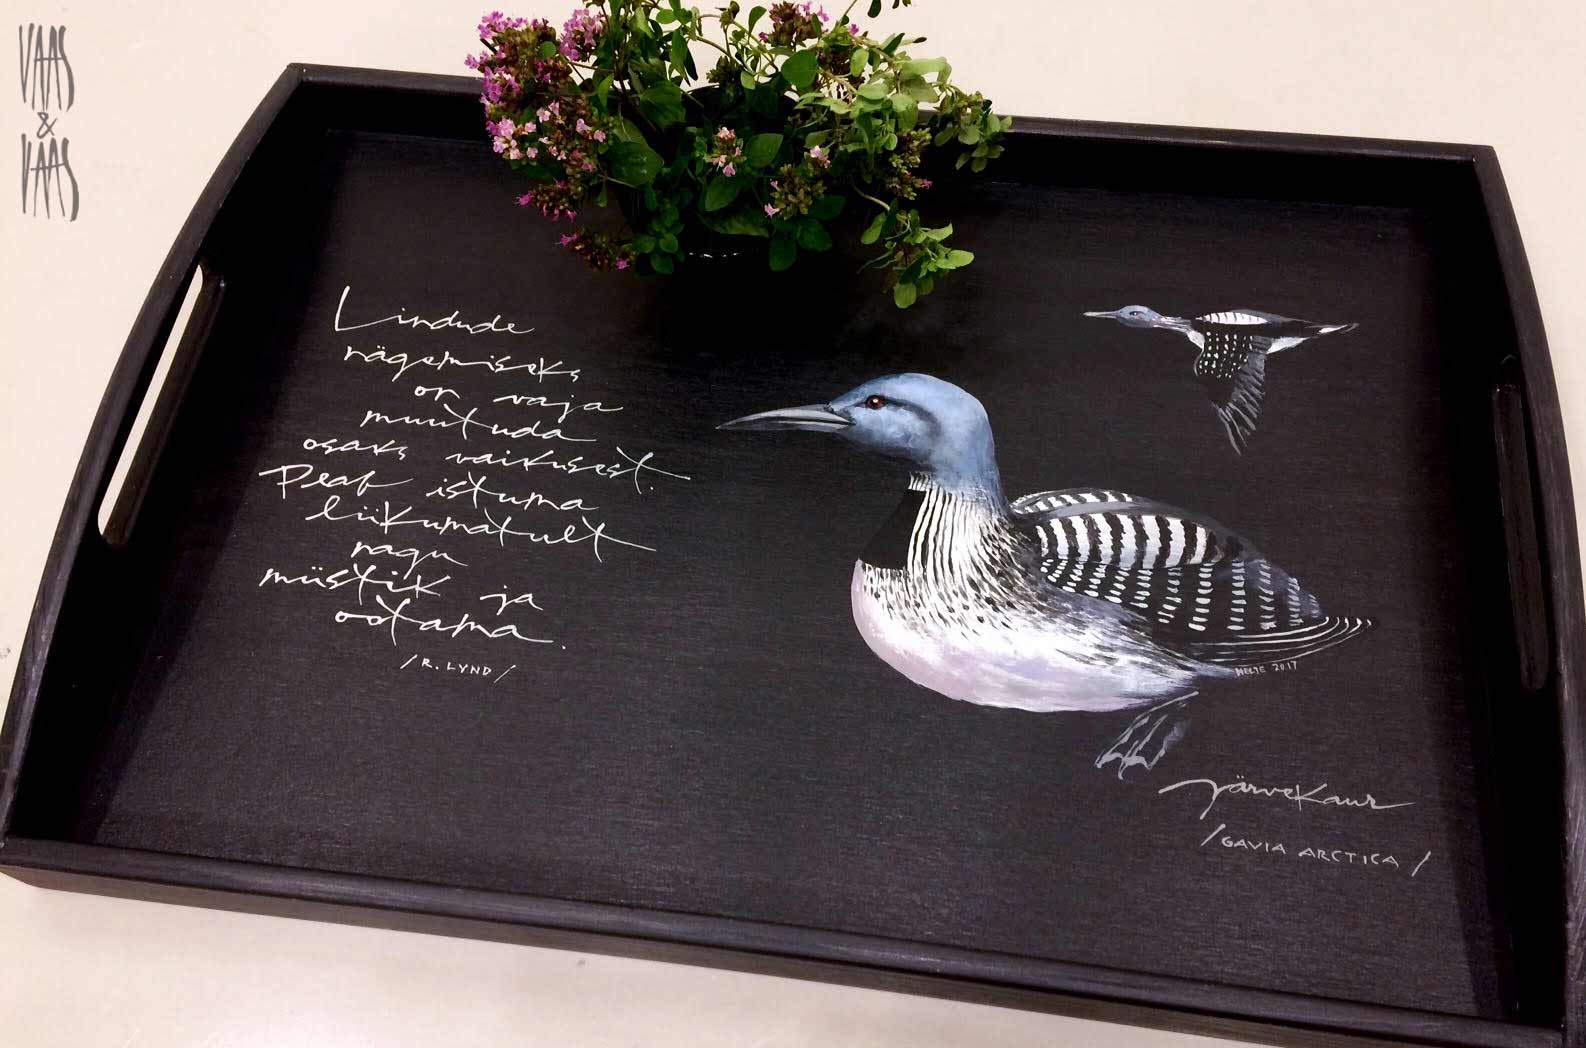 VAAS
&
VAAS
Lindude
nägemiseks
on vaja
muutuda
osaks vaikusest.
Peab istuma
liikumatult
nagu
müstik ja
ootama.
/R. LYND/
HELJE 2017
Järvekaur
/GAVIA ARCTICA/